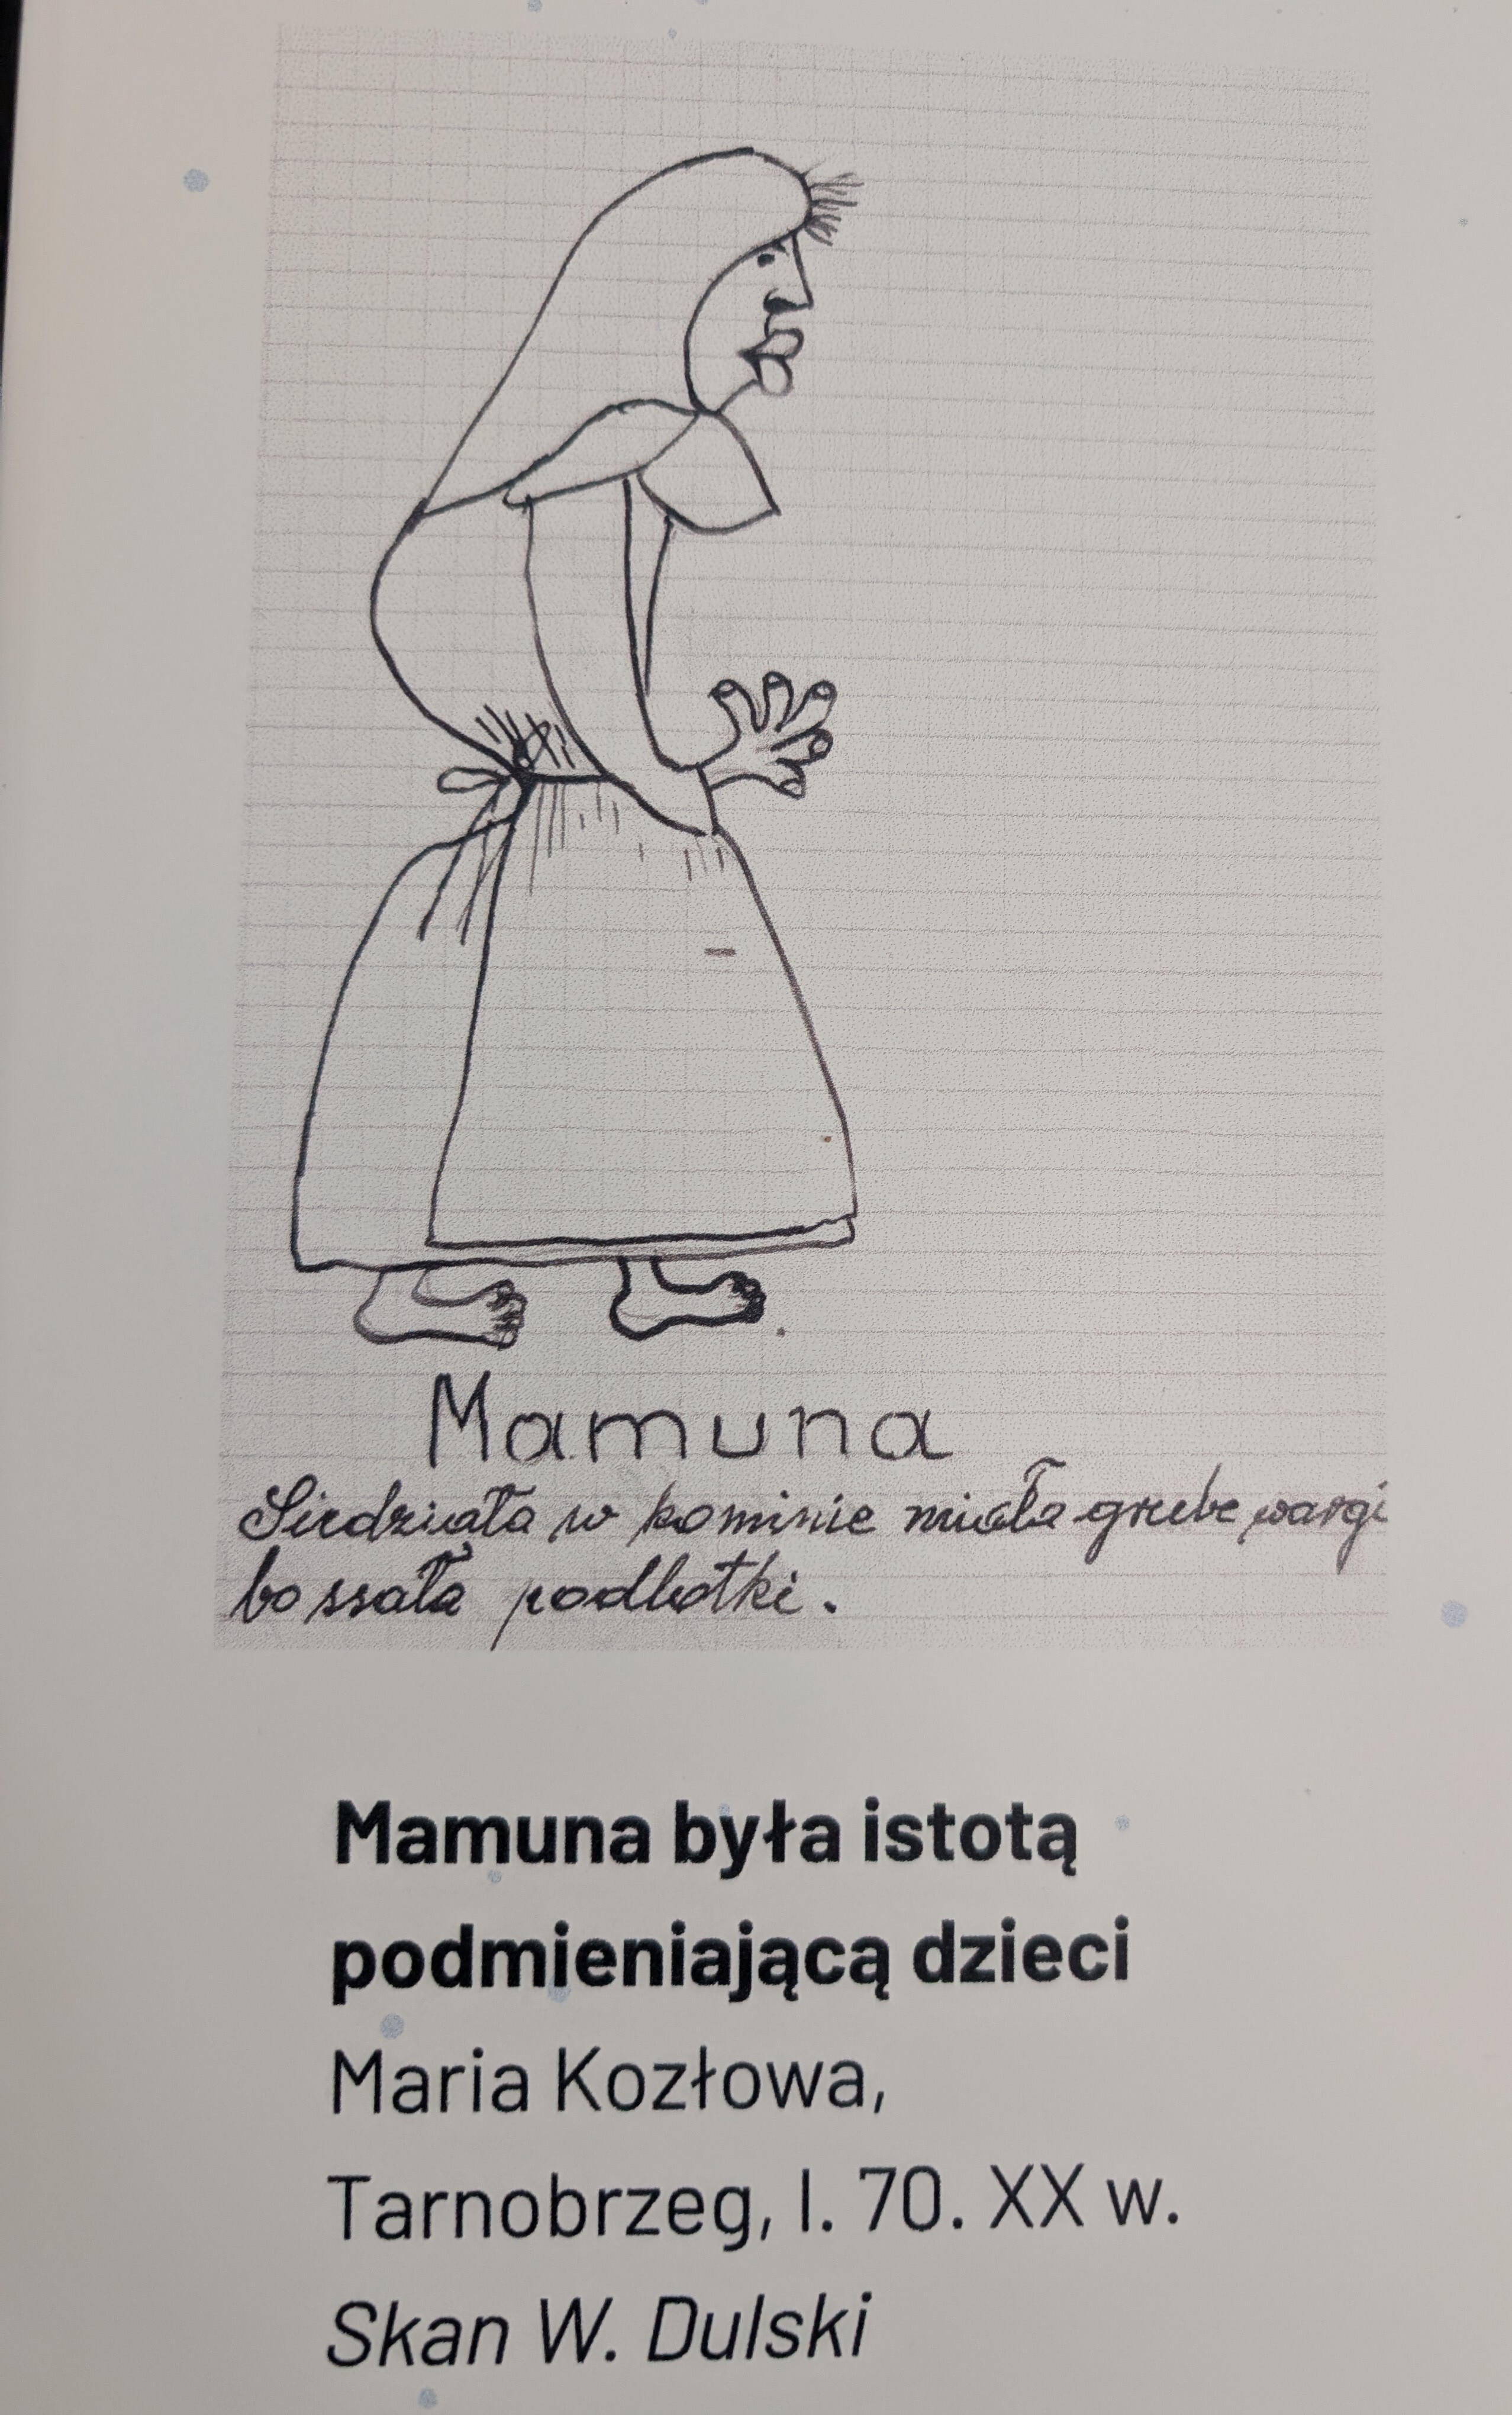 Mamuna
Siedziała w kominie miała grube wargi
bo ssała podlotki.
Mamuna była istotą
podmieniającą dzieci
Maria Kozłowa,
Tarnobrzeg, l. 70. XX w.
Skan W. Dulski